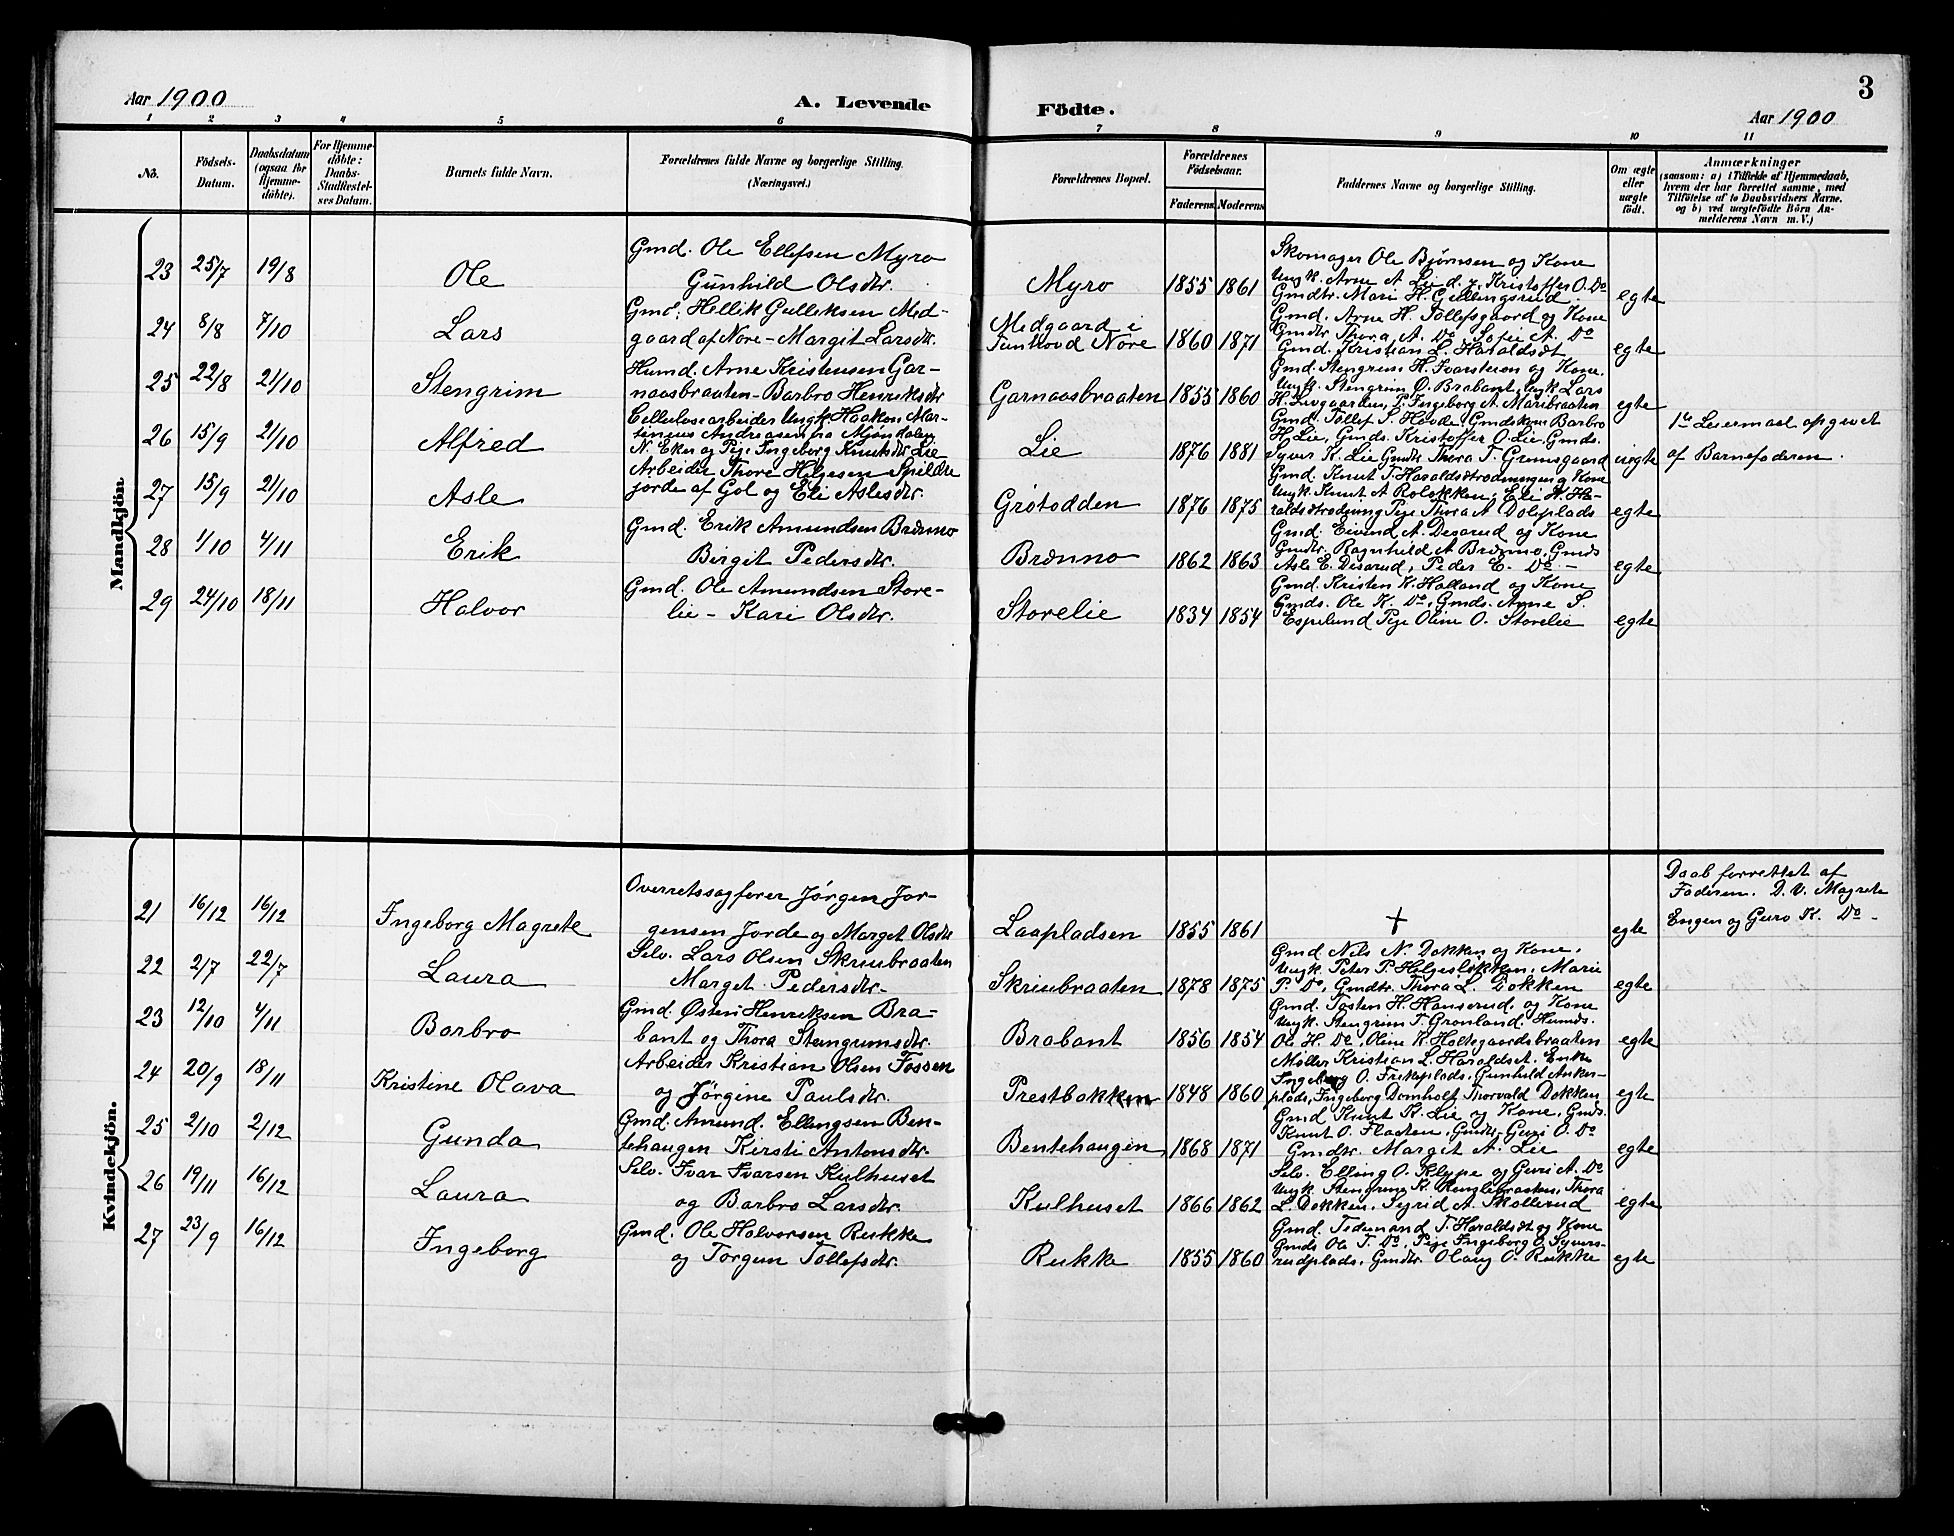 3
Aar 1900
A. Levende
Födte.
Aar 1900
1 2 3 4 5 6 7 8 9 10 11
No.
Födsels-Datum.
Daabsdatum (ogsaa for Hjemme-döbte).
For Hjemme-döbte: Daabs-Stadfæstel-ses Datum.
Barnets fulde Navn.
Forældrenes fulde Navne og borgerlige Stilling.
(Næringsvei.)
Forældrenes Bopæl.
Forældrenes Födselsaar.
Faderens. Moderens.
Faddernes Navne og borgerlige Stilling.
Om ægte eller uægte födt.
Anmærkninger
(saasom: a) i Tilfælde af Hjemmedaab,
hvem der har forrettet samme, med
Tilföielse af to Daabsvidners Navne.
og b) ved uægtefödte Börn An-
melderens Navn m. V.)
Mandkjön
23 25/7 19/8 Ole
Gmd. Ole Ellefsen Myro
Gunhild Olsdtr.
Myro 1855 1861
Skomager Ole Bjørnsen og Kone
Ungk. Arne A. Lie d. y. Kristoffer O. Do
Gmdtr. Mari H. Gullingsrud
egte
24 8/8 7/10 Lars
Gmd. Hellik Gulleksen Med-
gaard af Nore - Margit Larsdtr.
Medgaard i
Tunhovd Nore 1860 1871
Gmd. Arne H. Tollefsgaard og Kone
Gmdtr. Thora A. Do Sofie A. Do
Gmd. Kristian L. Haraldsdt
egte
25 22/8 21/10 Stengrim
Husmd. Arne Kristensen Gar-
naasbraaten - Barbro Henriksdtr
Garnaasbraaten 1855 1860
Gmd. Stengrim H. Ivarsteen og Kone.
Ungk. Stengrim Ø. Brabant, Ungk Lars
H. Livgaarden, P. Ingeborg A. Maribraaten
egte
26 15/9 21/10 Alfred
Cellulosearbeider Ungk. Haakon Mar-
tenius Andreasen fra Mjøndalen
N. Eker og Pige Ingeborg Knutsdtr Lie
Lie 1876 1881
Gmd. Tollef S. Hovde, Gmdskone Barbro
H. Lie, Gmds. Kristoffer O. Lie, Gmds.
Syver K. Lie Gmdtr. Thora T. Grimsgaard
uegte
1ste Leiermaal opgivet
af Barnefaderen.
27 15/9 21/10 Asle
Arbeider Thore Helgesen Skildre
jorde af Gol og Eli Aslesdtr.
Grøtodden 1876 1875
Gmd. Knut T. Haraldsdtrødningen og Kone
Ungk. Knut A Roløkken, Eli H. Ha-
raldsdtrødning Pige Thora A Doleplads
egte
28 1/10 4/11 Erik
Gmd. Erik Amundsen Brænno
Birgit Pedersdtr.
Brænno 1862 1863
Gmd. Eivind A. Desarud og Kone
Gmdtr. Ragnhild A Brænno, Gmds
Asle E. Desarud, Peder E. Do -
egte
29 24/10 18/11 Halvor
Gmd. Ole Amundsen Store-
lie - Kari Olsdtr.
Storelie 1834 1854
Gmd. Kristen K. Halland og Kone
Gmds. Ole K. Do, Gmds. Arne S.
Espelund Pige Oline O. Storelie
egte
Kvindekjön.
21 16/12 16/12 Ingeborg Magrete
Overretssagfører Jørgen Jor-
gensen Jorde og Marget Olsdtr
Laapladsen 1855 1861
+
egte
Daab forrettet af
Faderen. D. V. Magrete
Engen og Guro K. Do -
22 2/7 22/7 Laura
Selv. Lars Olsen Skriubraaten
Marget Pedersdtr-
Skriubraaten 1878 1875
Gmd. Nils N. Dokken og Kone.
Ungk. Peter P. Helgesløkken, Marie
P. Do, Gmdtr. Thora L. Dokken
egte
23 12/10 4/11 Barbro
Gmd. Østen Henriksen Bra-
bant og Thora Stengrimsdtr.
Brabant 1856 1854
Gmd. Tosten H. Hanserud. og Kone
Ungk. Stengrim T. Grønland. Husmds.
Ole H. Do, Oline K. Holtegaardsbraaten
egte
24 20/9 18/11 Kristine Olava
Arbeider Kristian Olsen Fossen
og Jørgine Paulsdtr.
Prestbakken 1848 1860
Møller Kristian L. Haraldset. Enke
Ingeborg O. Frekeplads, Gunhild Anker-
plads, Ingeborg Domholt Thorvald Dokken
egte
25 2/10 2/12 Gunda
Gmd. Amund. Ellingsen Ben-
tehaugen Kirsti Antonsdtr.
Bentehaugen 1868 1871
Gmd. Knut K. Lie og Kone, Gmds.
Knut O. Flaaten, Gmdtr. Guri O. Do
Gmdtr. Marget A. Lie
egte
26 19/11 16/12 Laura
Selv. Ivar Ivarsen Kulhuset
og Barbro Larsdtr.
Kulhuset 1866 1862
Selv. Elling O. Klype og Guri A. Do
Ungk. Stengrim K. Ringlebraaten, Thora
L. Dokken, Syrid A. Skollerud
egte
27 23/9 16/12 Ingeborg
Gmd. Ole Halvorsen Rukke
og Torgun Tollefsdtr.
Rukke 1855 1860
Gmd. Tidemand T. Haraldsdt og Kone
Gmds Ole T. Do, Pige Ingeborg O. Syvers-
rudplads, Gmdtr. Olaug O. Rukke
egte